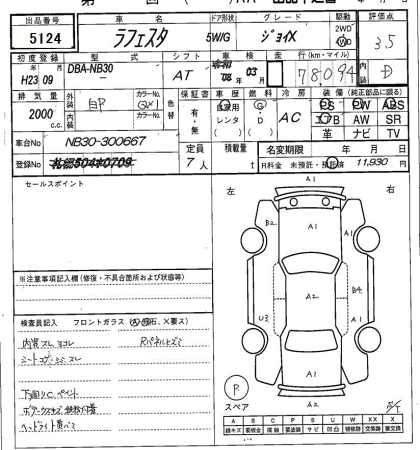 出品番号 車名 ドア形状 グレード 駆動 評価点
5124 ラフェスタ 5W/G ジョイX 2WD 4WD 3.5
初度登録 型式 シフト 車検 走行(km・マイル) 内装
H23 09 DBA-NB30 AT 08年 03月 78,094 D
排気量 外装 カラーNo. 色替 保証書 車歴 燃料 冷房 装備(純正部品に限る)
2000cc 白P QX1 有・無 自家用 レンタ G・D AC PS PW ABS
内装 カラーNo. エアB AW SR
革 ナビ TV
車台No NB30-300667 定員 積載量 名変期限 年 月 日
登録No 札幌504ま0709 7人 t R料金 未預託・預託済 11,930円
セールスポイント
左 右
A1
B2 A1
A1
A2 B4
U3
A1
A2
※注意事項記入欄(修復・不具合箇所および状態等)
検査員記入 フロントガラス(A、飛石、X要ス)
内装スレ、ヨコレ Rパネルヒズミ
シートコゲ、スレ
下回りC、ペイント
ヘッドライト黄バミ
P
スペア S/T
A B C P S U W XX X
線キズ 要板金 腐蝕 要塗装 サビ 凹凸 補修跡 交換跡 要交換